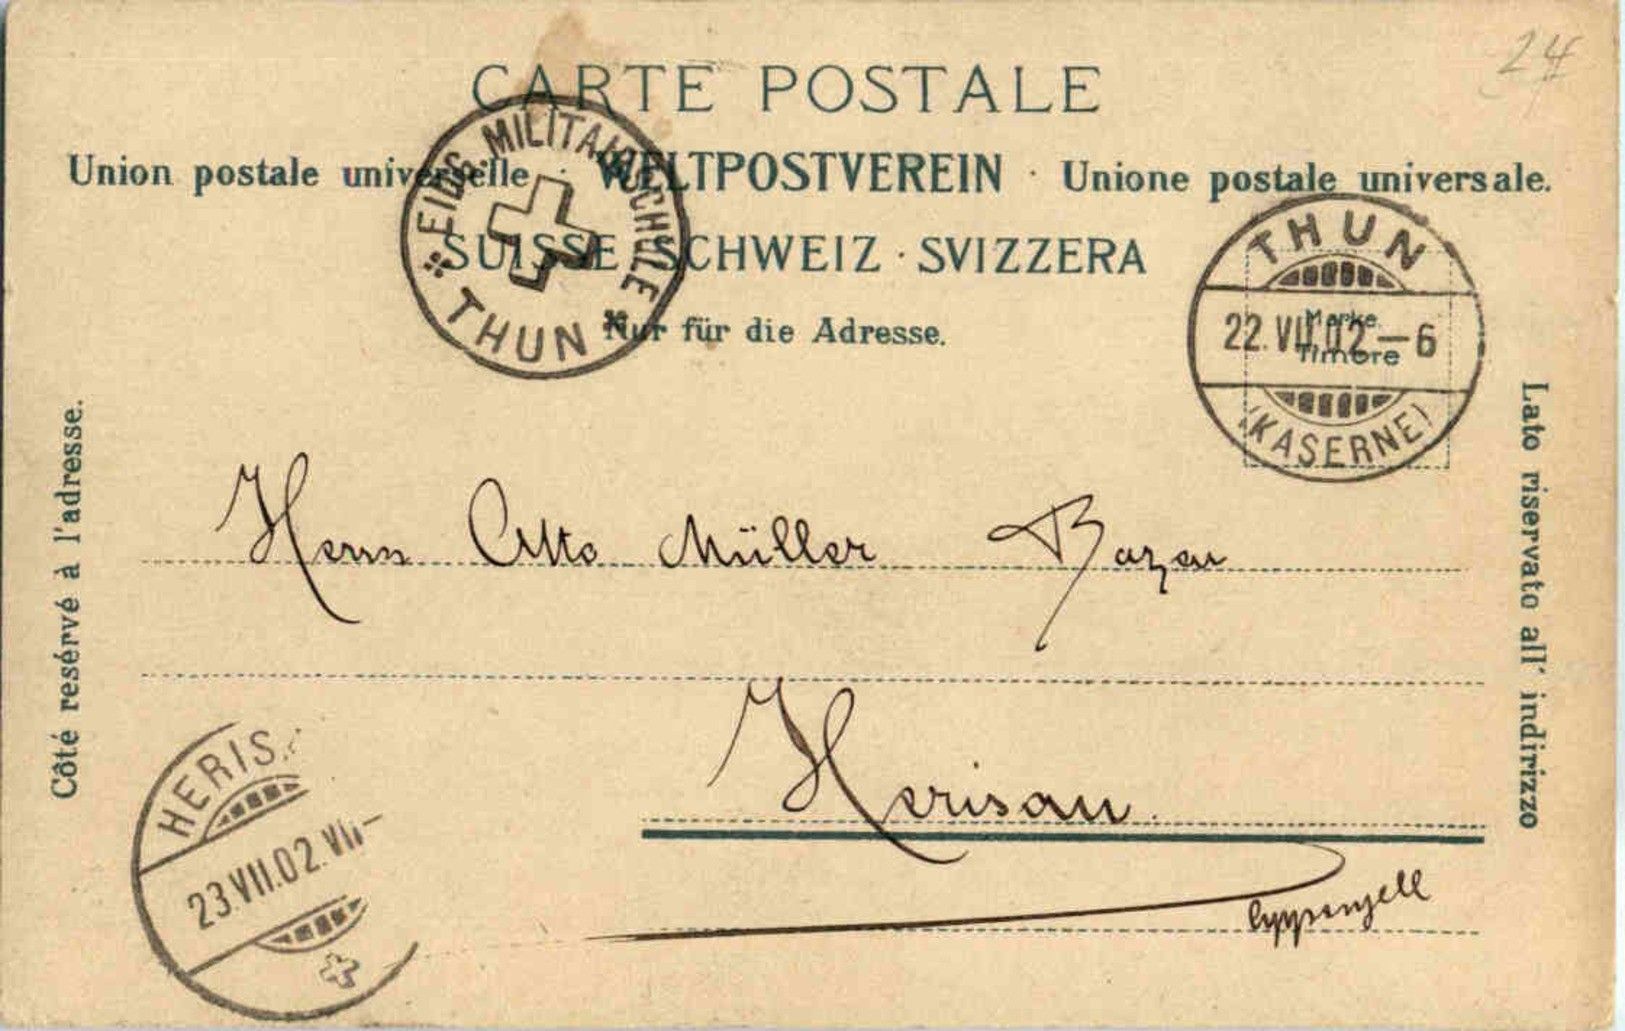 24
CARTE POSTALE
Union postale universelle · WELTPOSTVEREIN · Unione postale universale.
SUISSE · SCHWEIZ · SVIZZERA
Nur für die Adresse.
EIDG. MILITAIRSCHULE
THUN
THUN
22.VII.02–6
(KASERNE)
Marke
Timbre
Côté resérvé à l'adresse.
Lato riservato all' indirizzo
Herrn Otto Müller Bazar
Herisau.
Appenzell
HERIS
23.VII.02.VII–